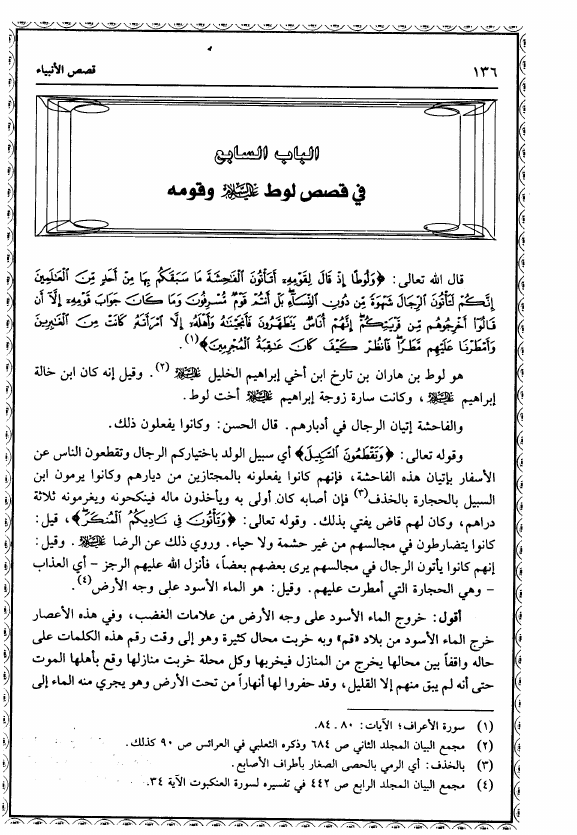 ١٣٦
قصص الأنبياء
الباب السابع
في قصص لوط عليه السلام وقومه
قال الله تعالى: ﴿وَلُوطًا إِذْ قَالَ لِقَوْمِهِۦٓ أَتَأْتُونَ ٱلْفَـٰحِشَةَ مَا سَبَقَكُم بِهَا مِنْ أَحَدٍ مِّنَ ٱلْعَـٰلَمِينَ
إِنَّكُمْ لَتَأْتُونَ ٱلرِّجَالَ شَهْوَةً مِّن دُونِ ٱلنِّسَآءِ بَلْ أَنتُمْ قَوْمٌ مُّسْرِفُونَ وَمَا كَانَ جَوَابَ قَوْمِهِۦٓ إِلَّآ أَن
قَالُوٓا۟ أَخْرِجُوهُم مِّن قَرْيَتِكُمْ إِنَّهُمْ أُنَاسٌ يَتَطَهَّرُونَ فَأَنجَيْنَـٰهُ وَأَهْلَهُۥٓ إِلَّا ٱمْرَأَتَهُۥ كَانَتْ مِنَ ٱلْغَـٰبِرِينَ
وَأَمْطَرْنَا عَلَيْهِم مَّطَرًا فَٱنظُرْ كَيْفَ كَانَ عَـٰقِبَةُ ٱلْمُجْرِمِينَ﴾(١).
هو لوط بن هاران بن تارخ ابن أخي إبراهيم الخليل عليه السلام (٢). وقيل إنه كان ابن خالة
إبراهيم عليه السلام، وكانت سارة زوجة إبراهيم عليه السلام أخت لوط.
والفاحشة إتيان الرجال في أدبارهم. قال الحسن: وكانوا يفعلون ذلك.
وقوله تعالى: ﴿وَتَقْطَعُونَ ٱلسَّبِيلَ﴾ أي سبيل الولد باختياركم الرجال وتقطعون الناس عن
الأسفار بإتيان هذه الفاحشة، فإنهم كانوا يفعلونه بالمجتازين من ديارهم وكانوا يرمون ابن
السبيل بالحجارة بالخذف(٣) فإن أصابه كان أولى به ويأخذون ماله فينكحونه ويغرمونه ثلاثة
دراهم، وكان لهم قاض يفتي بذلك. وقوله تعالى: ﴿وَتَأْتُونَ فِى نَادِيكُمُ ٱلْمُنكَرَ﴾، قيل:
كانوا يتضارطون في مجالسهم من غير حشمة ولا حياء. وروي ذلك عن الرضا عليه السلام. وقيل:
إنهم كانوا يأتون الرجال في مجالسهم يرى بعضهم بعضاً، فأنزل الله عليهم الرجز – أي العذاب
– وهي الحجارة التي أمطرت عليهم. وقيل: هو الماء الأسود على وجه الأرض(٤).
أقول: خروج الماء الأسود على وجه الأرض من علامات الغضب، وفي هذه الأعصار
خرج الماء الأسود من بلاد «قم» وبه خربت محال كثيرة وهو إلى وقت رقم هذه الكلمات على
حاله واقفاً بين محالها يخرج من المنازل فيخربها وكل محلة خربت منازلها وقع بأهلها الموت
حتى أنه لم يبق منهم إلا القليل، وقد حفروا لها أنهاراً من تحت الأرض وهو يجري منه الماء إلى
(١) سورة الأعراف؛ الآيات: ٨٠ ـ ٨٤.
(٢) مجمع البيان المجلد الثاني ص ٦٨٤ وذكره الثعلبي في العرائس ص ٩٠ كذلك.
(٣) بالخذف: أي الرمي بالحصى الصغار بأطراف الأصابع.
(٤) مجمع البيان المجلد الرابع ص ٤٤٢ في تفسيره لسورة العنكبوت الآية ٣٤.